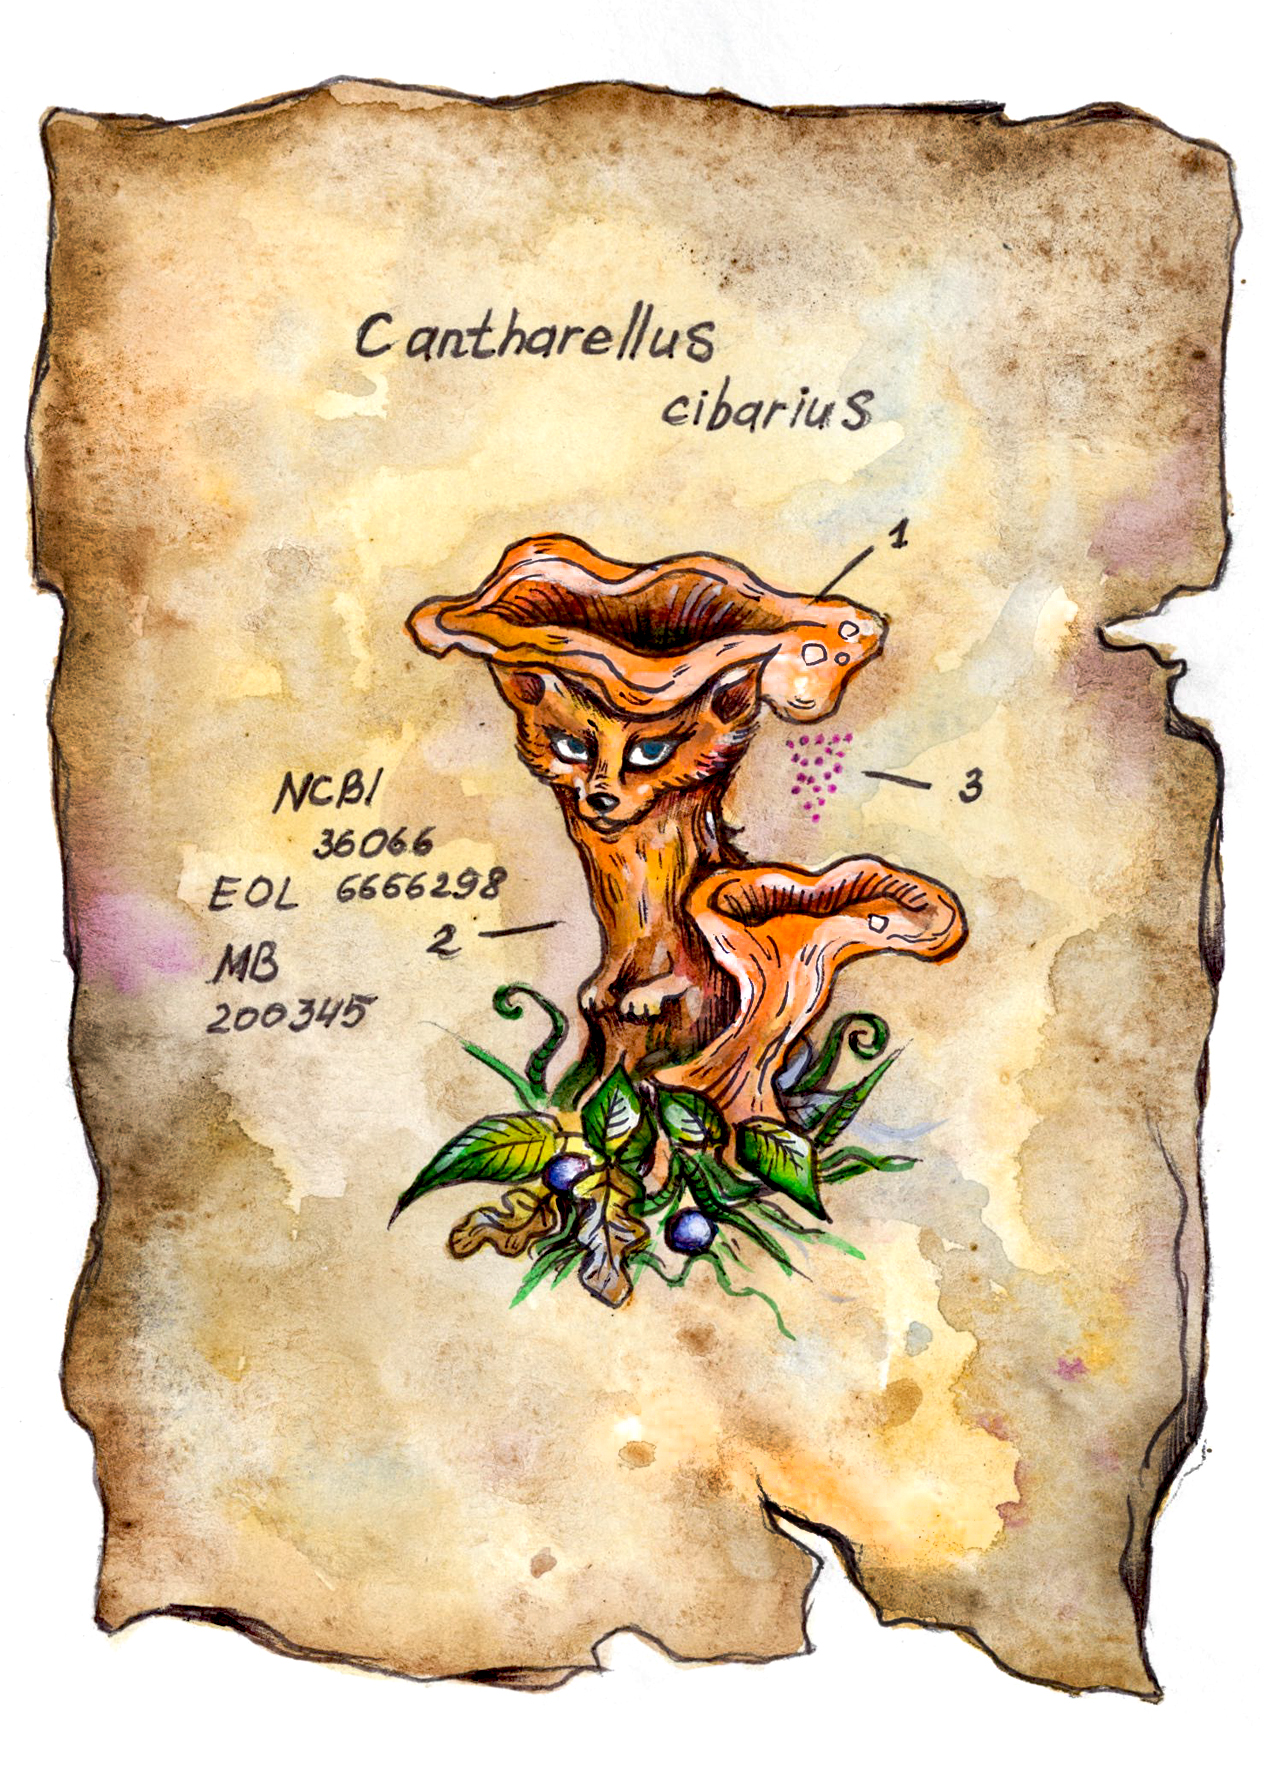 Cantharellus
cibarius
1
3
NCBI
36066
EOL 6666298
2
MB
200345